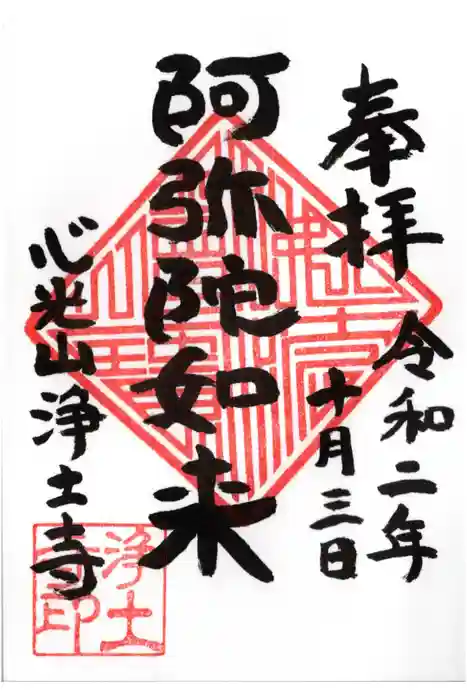 奉拝
令和二年
十月三日
阿弥陀如来
心光山浄土寺
浄土
寺印